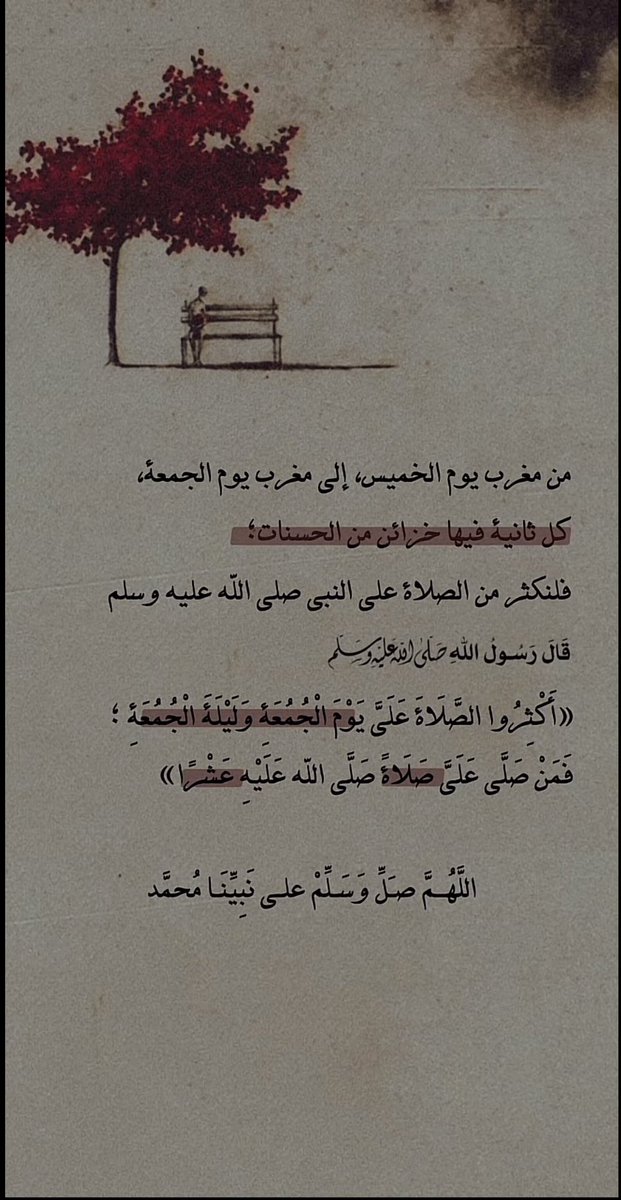 من مغرب يوم الخميس، إلى مغرب يوم الجمعة،
كل ثانية فيها خزائن من الحسنات؛
فلنكثر من الصلاة على النبي صلى اللّه عليه وسلم
قَالَ رَسُولُ اللهِ صَلَّى اللهُ عَلَيْهِ وَسَلَّم
«أَكْثِرُوا الصَّلَاةَ عَلَيَّ يَوْمَ الْجُمُعَةِ وَلَيْلَةَ الْجُمُعَةِ ؛
فَمَنْ صَلَّى عَلَيَّ صَلَاةً صَلَّى اللّه عَلَيْهِ عَشْرًا»
اللَّهُمَّ صَلِّ وَسَلِّمْ على نَبِيِّنَا مُحمَّد